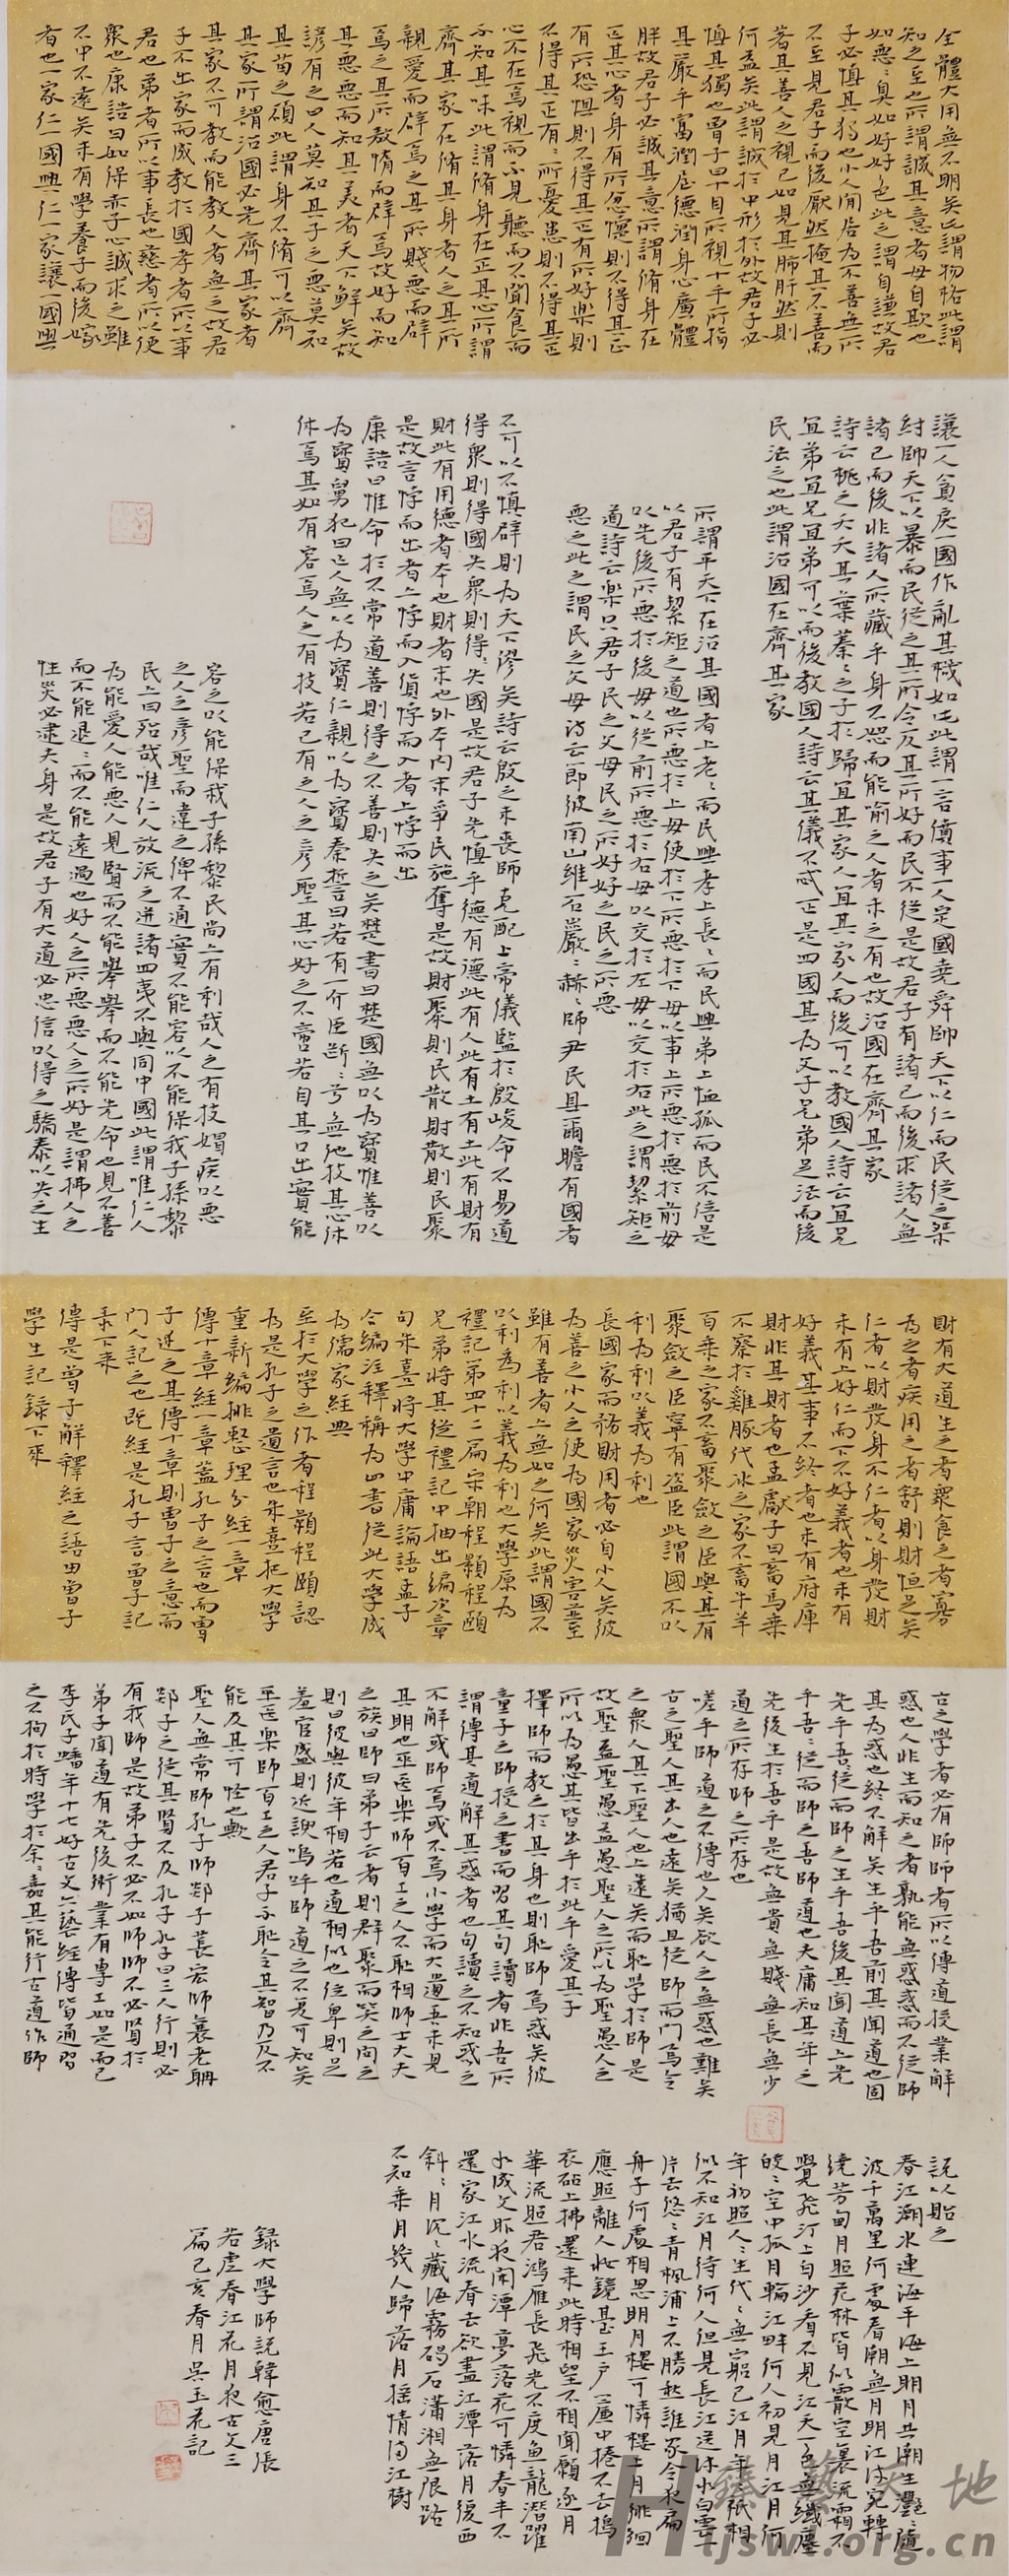 全體大用無不明矣此謂物格此謂
知之至也所謂誠其意者毋自欺也
如惡〻臭如好好色此之謂自謙故君
子必慎其獨也小人閒居為不善無所
不至見君子而後厭然掩其不善而
著其善人之視己如見其肺肝然則
何益矣此謂誠於中形於外故君子必
慎其獨也曾子曰十目所視十手所指
其嚴乎富潤屋德潤身心廣體
胖故君子必誠其意所謂脩身在
正其心者身有所忿懥則不得其正
有所恐懼則不得其正有所好樂則
不得其正有〻所憂患則不得其正
心不在焉視而不見聽而不聞食而
不知其味此謂脩身在正其心所謂
齊其家在脩其身者人之其所
親愛而辟焉之其所賤惡而辟
焉之其所敖惰而辟焉故好而知
其惡惡而知其美者天下鮮矣故
諺有之曰人莫知其子之惡莫知
其苗之碩此謂身不脩可以齊
其家所謂治國必先齊其家者
其家不可教而能教人者無之故君
子不出家而成教於國孝者所以事
君也弟者所以事長也慈者所以使
眾也康誥曰如保赤子心誠求之雖
不中不遠矣未有學養子而後嫁
者也一家仁一國興仁一家讓一國興
讓一人貪戾一國作亂其機如此此謂一言僨事一人定國堯舜帥天下以仁而民從之桀
紂帥天下以暴而民從之其所令反其所好而民不從是故君子有諸己而後求諸人無
諸己而後非諸人所藏乎身不恕而能喻之人者未之有也故治國在齊其家
詩云桃之夭夭其葉蓁〻之子於歸宜其家人宜其家人而後可以教國人詩云宜兄
宜弟宜兄宜弟可以而後教國人詩云其儀不忒正是四國其為父子兄弟足法而後
民法之也此謂治國在齊其家
所謂平天下在治其國者上老〻而民興孝上長〻而民興弟上恤孤而民不倍是
以君子有絜矩之道也所惡於上毋使於下所惡於下毋以事上所惡於惡於前毋
以先後所惡於後毋以從前所惡於右毋以交於左毋以交於右此之謂絜矩之
道詩云樂只君子民之父母民之所好好之民之所惡
惡之此之謂民之父母詩云節彼南山維石巖〻赫〻師尹民具爾瞻有國者
不可以不慎辟則為天下僇矣詩云殷之未喪師克配上帝儀監於殷峻命不易道
得眾則得國失眾則得〻失國是故君子先慎乎德有德此有人此有土有土此有財有
財此有用德者本也財者末也外本內末爭民施奪是故財聚則民散財散則民聚
是故言悖而出者上悖而入貨悖而入者上悖而出
康誥曰惟命於不常道善則得之不善則失之矣楚書曰楚國無以為寶惟善以
為寶舅犯曰亡人無以為寶仁親以為寶秦誓曰若有一介臣斷〻兮無他技其心休
休焉其如有容焉人之有技若己有之人之彥聖其心好之不啻若自其口出實能
容之以能保我子孫黎民尚上有利哉人之有技媢疾以惡
之人之彥聖而違之俾不通實不能容以不能保我子孫黎
民上曰殆哉唯仁人放流之迸諸四夷不與同中國此謂唯仁人
為能愛人能惡人見賢而不能舉舉而不能先命也見不善
而不能退〻而不能遠過也好人之所惡惡人之所好是謂拂人之
性災必逮夫身是故君子有大道必忠信以得之驕泰以失之生
財有大道生之者眾食之者寡
為之者疾用之者舒則財恒足矣
仁者以財發身不仁者以身發財
未有上好仁而下不好義者也未有
好義其事不終者也未有府庫
財非其財者也孟獻子曰畜馬乘
不察於雞豚伐冰之家不畜牛羊
百乘之家不畜聚斂之臣與其有
聚斂之臣寧有盜臣此謂國不以
利為利以義為利也
長國家而務財用者必自小人矣彼
為善之小人之使為國家災害並至
雖有善者上無如之何矣此謂國不
以利為利以義為利也大學原為
禮記第四十二篇宋朝程顥程頤
兄弟將其從禮記中抽出編次章
句朱熹將大學中庸論語孟子
合編注釋稱為四書從此大學成
為儒家經典
至於大學之作者程顥程頤認
為是孔子之遺言也朱熹把大學
重新編排整理分經一章
傳十章經一章蓋孔子之言也而曾
子述之其傳十章則曾子之意而
門人記之也既經是孔子言曾子記
錄下來
傳是曾子解釋經之語由曾子
學生記錄下來
古之學者必有師師者所以傳道授業解
惑也人非生而知之者孰能無惑惑而不從師
其為惑也終不解矣生乎吾前其聞道也固
先乎吾從而師之生乎吾後其聞道上先
乎吾〻從而師之吾師道也夫庸知其年之
先後生於吾乎是故無貴無賤無長無少
道之所存師之所存也
嗟乎師道之不傳也久矣欲人之無惑也難矣
古之聖人其出人也遠矣猶且從師而問焉今
之眾人其下聖人也上遠矣而恥學於師是
故聖益聖愚益愚聖人之所以為聖愚人之
所以為愚其皆出乎於此乎愛其子
擇師而教之於其身也則恥師焉惑矣彼
童子之師授之書而習其句讀者非吾所
謂傳其道解其惑者也句讀之不知惑之
不解或師焉或不焉小學而大遺吾未見
其明也巫醫樂師百工之人不恥相師士大夫
之族曰師曰弟子云者則群聚而笑之問之
則曰彼與彼年相若也道相似也位卑則足
羞官盛則近諛嗚呼師道之不復可知矣
巫醫樂師百工之人君子不恥今其智乃反不
能及其可怪也歟
聖人無常師孔子師郯子萇宏師襄老聃
郯子之徒其賢不及孔子孔子曰三人行則必
有我師是故弟子不必不如師師不必賢於
弟子聞道有先後術業有專工如是而已
李氏子蟠年十七好古文六藝經傳皆通習
之不拘於時學於余〻嘉其能行古道作師
說以貽之
春江潮水連海平海上明月共潮生灩〻隨
波千萬里何處春江無月明江流宛轉
繞芳甸月照花林皆似霰空裏流霜不
覺飛汀上白沙看不見江天一色無纖塵
皎〻空中孤月輪江畔何人初見月江月何
年初照人〻生代〻無窮已江月年〻衹相
似不知江月待何人但見長江送流水白雲
片去悠〻青楓浦上不勝愁誰家今夜扁
舟子何處相思明月樓可憐樓上月徘徊
應照離人妝鏡臺玉戶簾中捲不去搗
衣砧上拂還來此時相望不相聞願逐月
華流照君鴻雁長飛光不度魚龍潛躍
水成文昨夜閒潭夢落花可憐春半不
還家江水流春去欲盡江潭落月復西
斜〻月沉〻藏海霧碣石瀟湘無限路
不知乘月幾人歸落月搖情滿江樹
錄大學師說韓愈唐張
若虛春江花月夜古文三
篇己亥春月吳玉花記
臻藝天地
Hljswl.org.cn